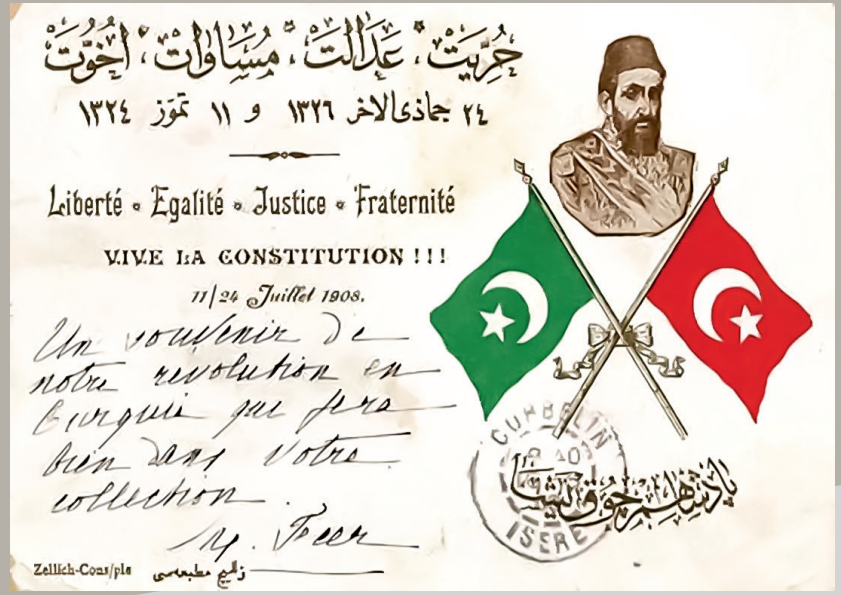 حُرِّيَتْ، عَدَالَتْ، مُسَاوَاتْ، اُخُوَّتْ
٢٤ جماذى‌الاخر ١٣٢٦ و ١١ تموز ١٣٢٤
Liberté • Egalité • Justice • Fraternité
VIVE LA CONSTITUTION !!!
11/24 Juillet 1908.
Un souvenir de
notre révolution en
Turquie qui fera
bien dans votre
collection.
CORBELIN
ISÈRE
پادشاهم چوق يشا
Zellich-Cons/ple
زلليچ مطبعه‌سى